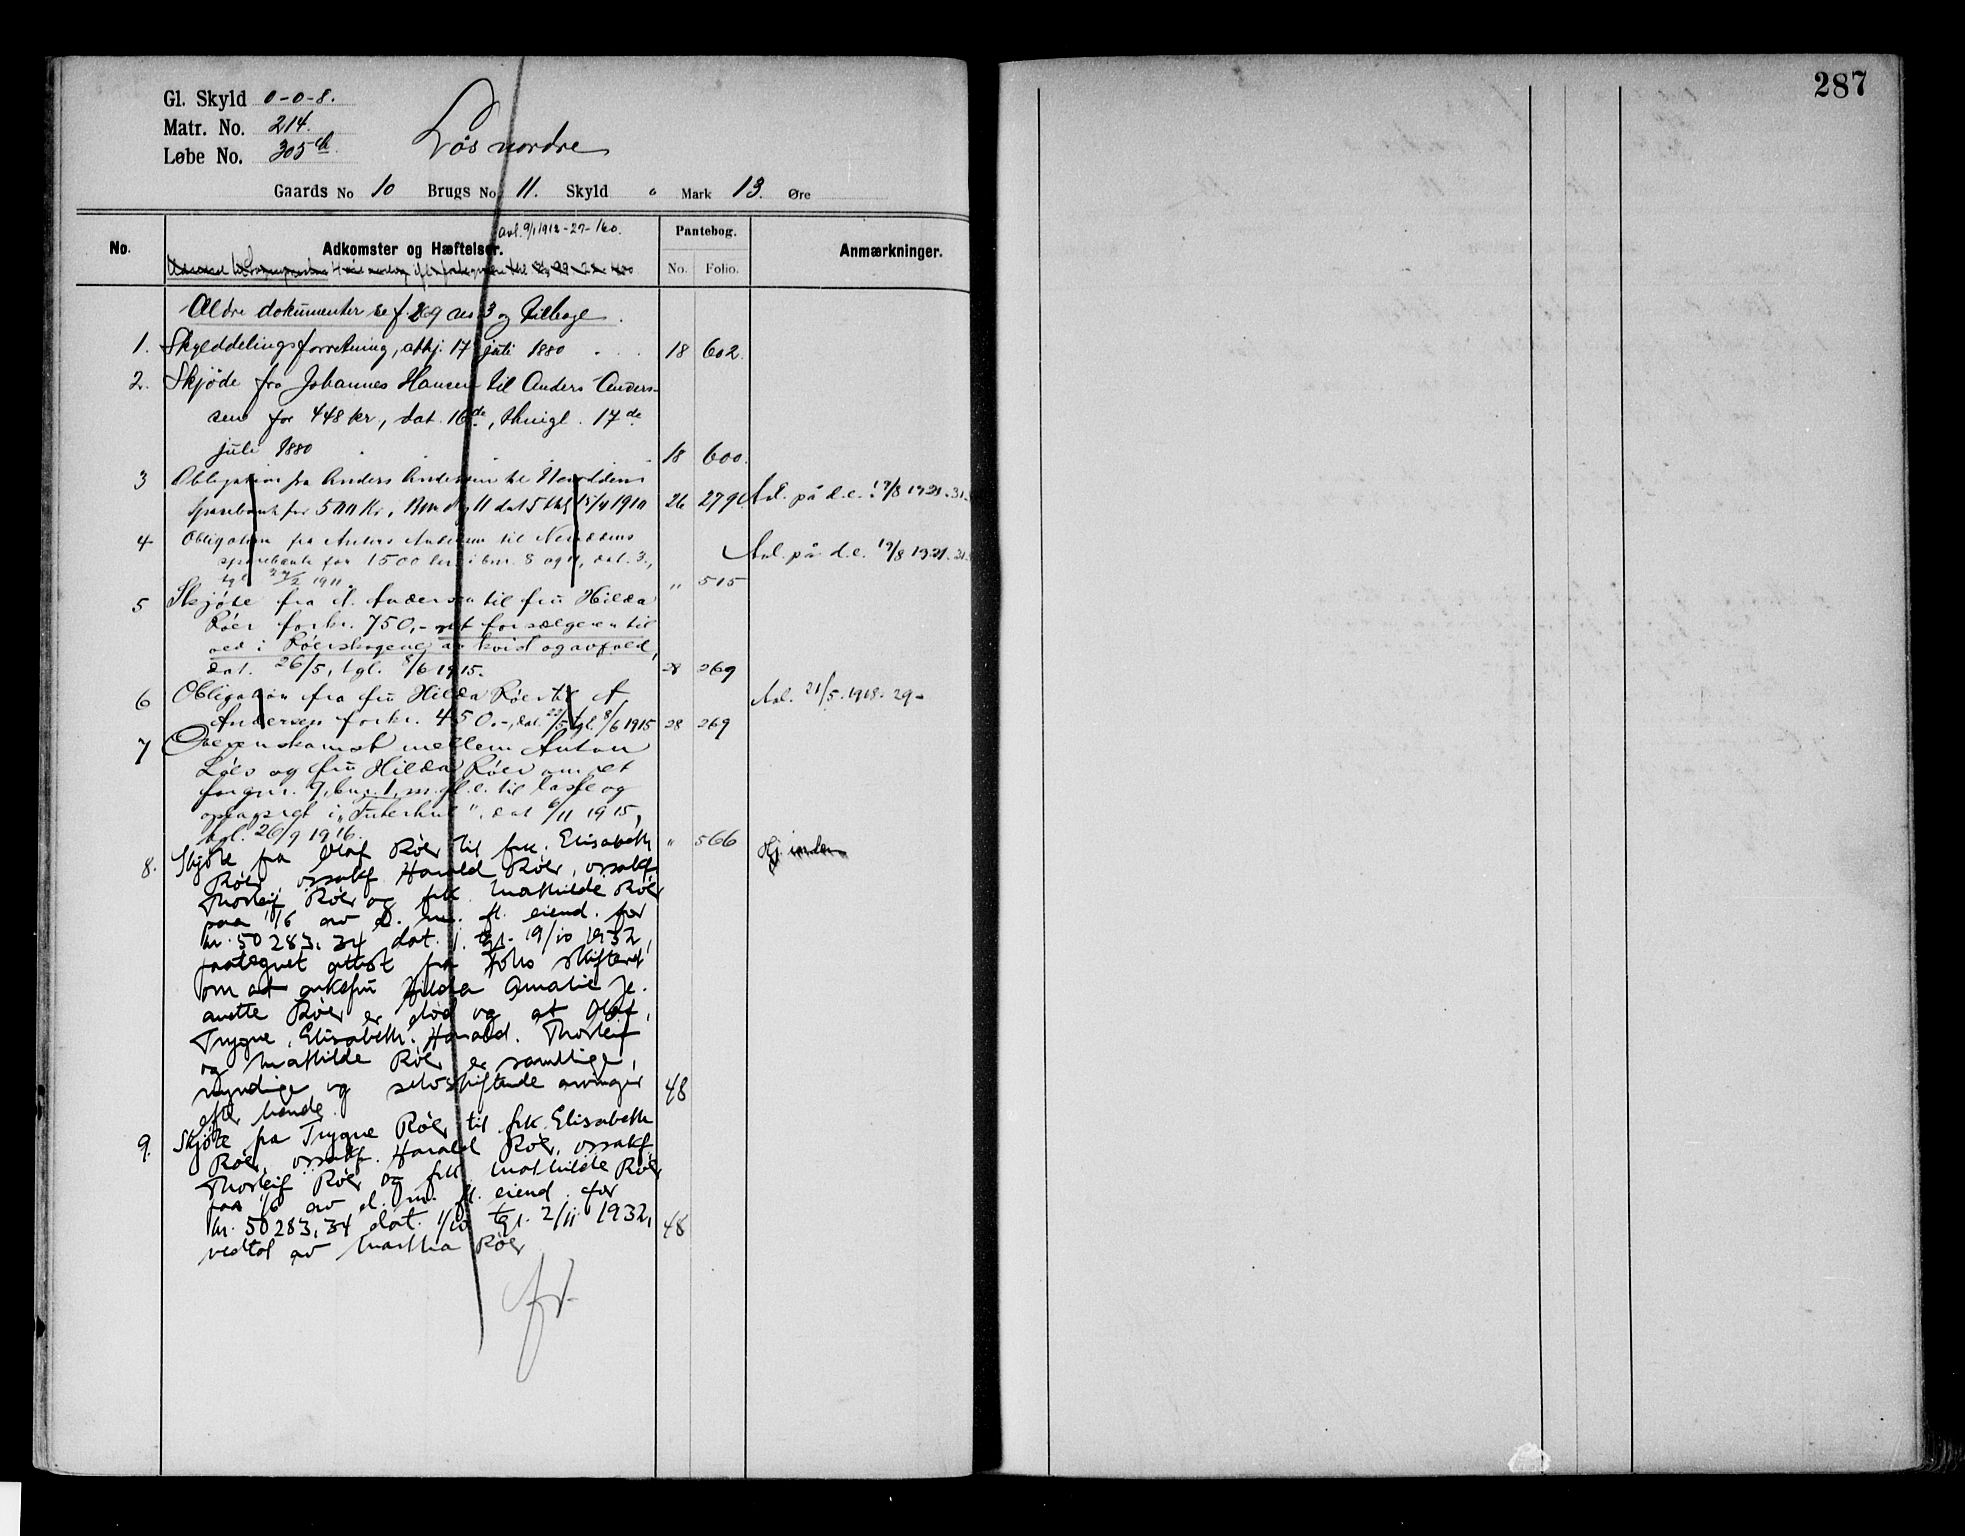 287
Gl. Skyld 0-0-8.
Matr. No. 214.
Løbe No. 305
Løs nordre
Gaards No 10 Brugs No 11. Skyld 0 Mark 13. Øre
avl. 9/1 1912-27-160.
No. Adkomster og Hæftelser. Pantebog. Anmærkninger.
No. Folio.
Ældre dokumenter se f. 269 og tilbage.
1. Skylddelingsforretning, afhj. 17 juli 1880 18 602.
2. Skjøde fra Johannes Hansen til Anders Anders-
sen for 448 kr, dat. 16de, thingl. 17de
juli 1880 18 600.
3 Obligation fra Anders Andersen til
Sparebank for 500 Kr, 11 dat 5 15/4 1910 26 279 Avl. på d.e. 17/8 1921.31.
4 Obligation fra Anders Andersen til Nesoddens
sparebank for 1500 kr i bnr. 8 og 11, dat. 3., Avl. på d.e. 17/8 1921.31.
tgl 27/2 1911. " 515
5 Skjøte fra A. Andersen til fru Hilda
Røer for kr. 750,- ret for sælgeren til
ved i Røerskogene av kvist og avfald,
dat. 26/5, tgl. 8/6 1915. 28 269
6 Obligation fra fru Hilda Røer til A. Avl. 21/5.1918. 29-
Andersen for kr. 450.-, dat. 22/5 tgl. 8/6 1915 28 269
7 Overenskomst mellem Anton
Løes og fru Hilda Røer om ret
for gnr. 9, bnr. 1, m.fl. e. til laste og
dat 6/11 1915,
tgl. 26/9 1916. " 566
8. Skjøte fra Olaf Røer til frk. Elisabeth
Røer, Harald Røer,
Thorleif Røer og frk. Mathilde Røer
paa 1/6 av d. m. fl. eiend. for
kr. 50283,34 dat. tgl. 19/10 1932,
paategnet attest fra Follo skifteret
om at enkefru Hilda Amalie Je-
anette Røer er død og at Olaf,
Trygve, Elisabeth, Harald, Thorleif
og Mathilde Røer er samtlige,
myndige og selvskiftende arvinger 48
efter hende.
9. Skjøte fra Trygve Røer til frk. Elisabeth
Røer, Harald Røer,
Thorleif Røer og frk Mathilde Røer
paa 1/6 av d. m. fl. eiend. for
kr. 50283,34 dat. 1/10 tgl. 2/11 1932, 48
vedtat av Martha Røer